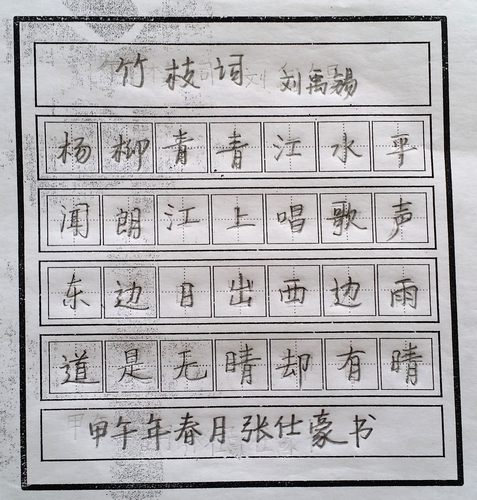 竹枝词 刘禹锡
杨柳青青江水平
闻朗江上唱歌声
东边月出西边雨
道是无晴却有晴
甲午年春月张仕豪书